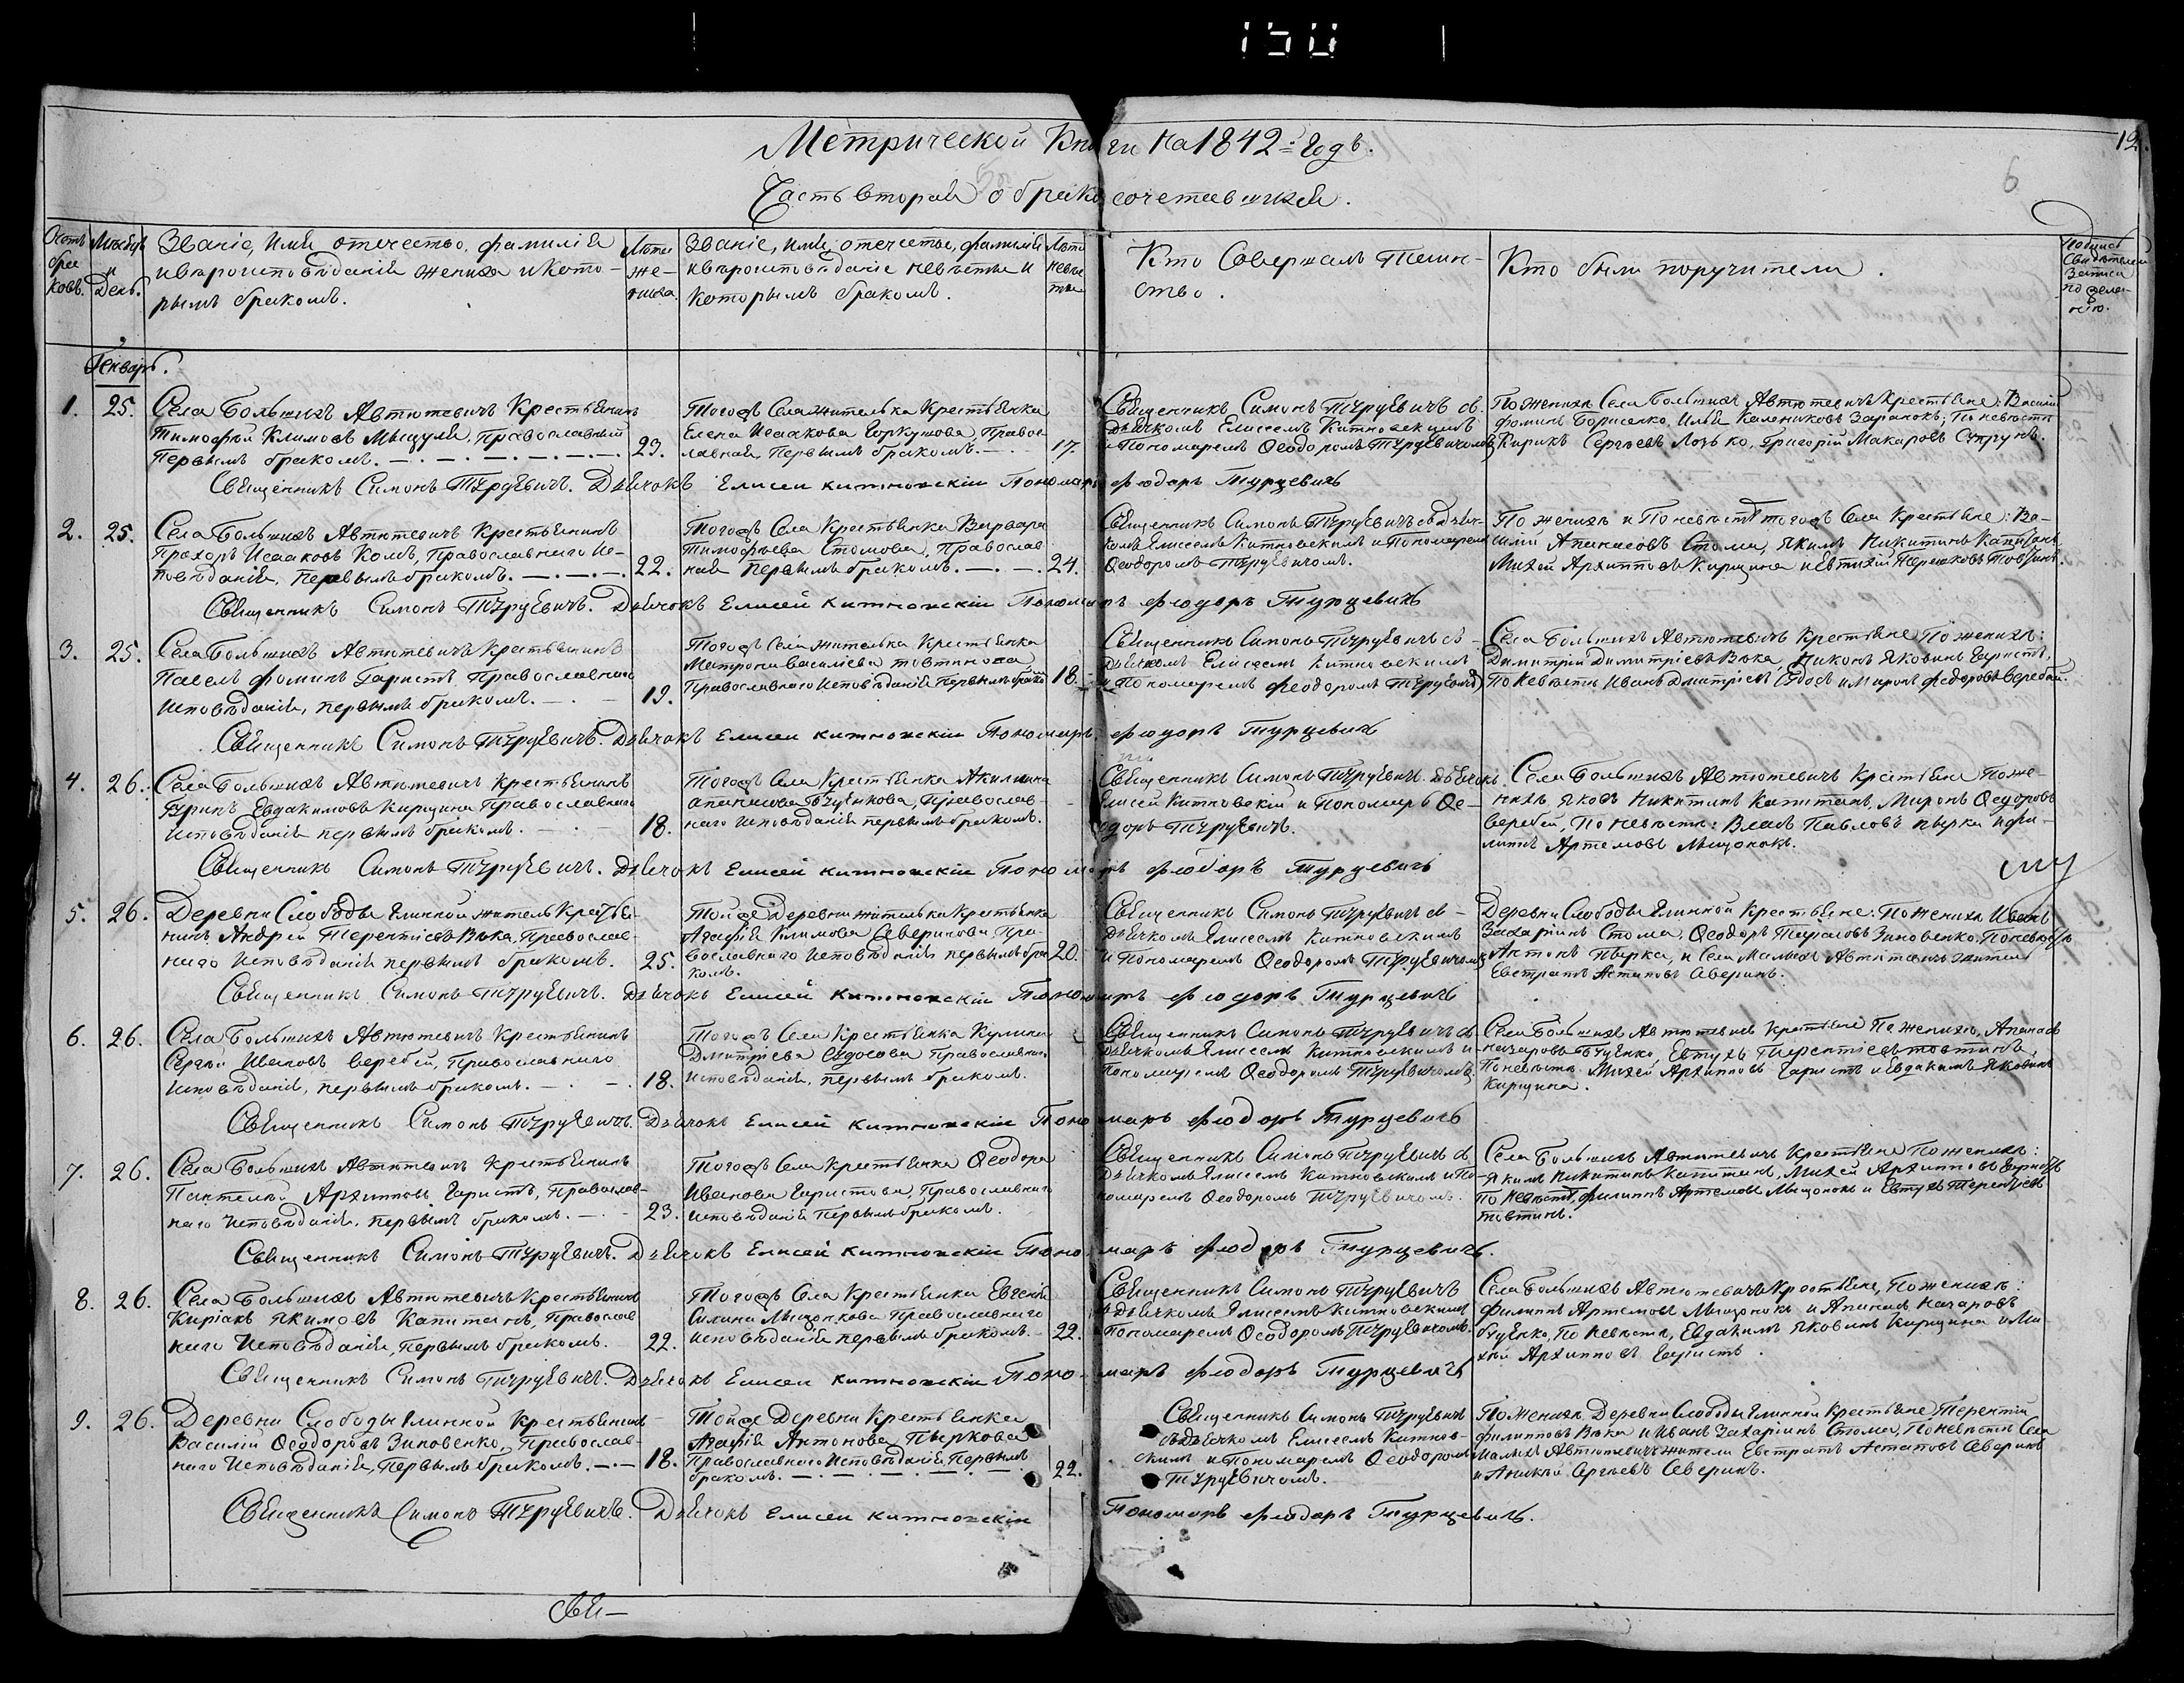 150
Метрической Книги на 1842й годъ.
12.
6
Часть вторая о бракосочетавшихся.
Счетъ браковъ.
Мѣсяцъ и День.
Званіе, имя, отечество, фамилія
и вѣроисповѣданіе жениха и кото-
рымъ бракомъ.
Лѣта же-
ниха.
Званіе, имя, отечество, фамилія
и вѣроисповѣданіе невѣсты и
которымъ бракомъ.
Лѣта невѣс-
ты
Кто Совершалъ Таин-
ство.
Кто были поручители.
Подпись
Свидѣтелей
Записи
по жела-
нію.
Генварь.
1. 25.
Села Большихъ Автютевичъ Крестьянинъ
Тимофей Климовъ Мыцуля, Православный
первымъ бракомъ.
23.
Тогожъ Села жителька Крестьянка
Елена Исаакова Горкушова, Правос-
лавная первымъ бракомъ.
17.
Священникъ Симонъ Турцевичъ съ
Дьячкомъ Елисеемъ Китновскимъ
и Пономаремъ Ѳеодоромъ Турцевичомъ
По Женихѣ Села Большихъ Автютевичъ Крестьяне: Василій
Фоминъ Борисенко, Илья Калениковъ; По невѣстѣ
Кирикъ Сергѣевъ, Григорій Макаровъ Супрунъ.
Священникъ Симонъ Турцевичъ. Дьячокъ Елисей Китновскій Пономарь Феодоръ Турцевичъ
2. 25.
Села Большихъ Автютевичъ Крестьянинъ
Прохоръ Исааковъ Комъ, Православнаго Ис-
повѣданія, первымъ бракомъ.
22.
Тогожъ Села Крестьянка Варвара
Тимофѣева Стомова, Православ-
ная первымъ бракомъ.
24.
Священникъ Симонъ Турцевичъ съ Дьяч-
комъ Елисеемъ Китновскимъ и Пономаремъ
Ѳеодоромъ Турцевичомъ.
По женихѣ и По невѣстѣ тогожъ Села Крестьяне: Ва-
силій Апанасовъ Стома, Якимъ Никитинъ Капитанъ
Михей Архиповъ Кирцина и
Священникъ Симонъ Турцевичъ. Дьячокъ Елисей Китновскій Пономарь Феодоръ Турцевичъ
3. 25.
Села Большихъ Автютевичъ Крестьянинъ
Павелъ Фоминъ Гаристъ Православнаго
Исповѣданія, первымъ бракомъ.
19.
Тогожъ Села жителька Крестьянка
Матрона Василіева Товтинова
Православнаго Исповѣданія первымъ бракомъ
18.
Священникъ Симонъ Турцевичъ съ
Дьячкомъ Елисеемъ Китновскимъ
и Пономаремъ Феодоромъ Турцевичомъ
Села Большихъ Автютевичъ Крестьяне По женихѣ:
Димитрій Димитріевъ Вака, Никонъ Яковинъ Гаристъ,
По невѣстѣ Иванъ Дмитріевъ и Миронъ Федоровъ Веребей.
Священникъ Симонъ Турцевичъ. Дьячокъ Елисей Китновскій Пономарь Феодоръ Турцевичъ
4. 26.
Села Большихъ Автютевичъ Крестьянинъ
Евдакимовъ Кирцина Православнаго
Исповѣданія первымъ бракомъ.
18.
Тогожъ Села Крестьянка Акилина
Апанасова Буценкова, Православ-
наго Исповѣданія первымъ бракомъ.
Священникъ Симонъ Турцевичъ. Дьячокъ
Елисей Китновскій и Пономарь Ѳе-
одоръ Турцевичъ.
Села Большихъ Автютевичъ Крестьяне По же-
нихѣ, Яковъ Никитинъ Капитанъ, Миронъ Ѳедоровъ
Веребей, По невѣстѣ: Власъ Павловъ Пырка и Фи-
липпъ Артемовъ Мыцонокъ.
Священникъ Симонъ Турцевичъ. Дьячокъ Елисей Китновскій Пономарь Феодоръ Турцевичъ
5. 26.
Деревни Слободы Глинной житель Крестья-
нинъ Андрей Терентіевъ Вака, Православ-
наго Исповѣданія первымъ бракомъ.
25.
Тойже Деревни жителька Крестьянка
Агафія Климова Аверинова Пра-
вославнаго Исповѣданія первымъ бра-
комъ.
20.
Священникъ Симонъ Турцевичъ съ
Дьячкомъ Елисеемъ Китновскимъ
и Пономаремъ Ѳеодоромъ Турцевичомъ
Деревни Слободы Глинной Крестьяне: По женихѣ Иванъ
Захаріинъ Стома, Ѳеодоръ Тарасовъ Зиновенко, По невѣстѣ
Антонъ Пырка, и Села Малыхъ Автютевичъ житель
Евстратъ Астаповъ Аверинъ.
Священникъ Симонъ Турцевичъ. Дьячокъ Елисей Китновскій Пономарь Феодоръ Турцевичъ
6. 26.
Села Большихъ Автютевичъ Крестьянинъ
Сергѣй Ивановъ Веребей, Православнаго
Исповѣданія, первымъ бракомъ.
18.
Тогожъ Села Крестьянка Кулина
Дмитріева Православнаго
Исповѣданія, первымъ бракомъ.
Священникъ Симонъ Турцевичъ съ
Дьячкомъ Елисеемъ Китновскимъ и
Пономаремъ Ѳеодоромъ Турцевичомъ
Села Большихъ Автютевичъ Крестьяне По женихѣ, Апанасъ
Назаровъ Буценко, Евтухъ Терентіевъ Товтинъ,
По невѣстѣ Михей Архиповъ Гаристъ и Евдакимъ Яковинъ
Кирцина.
Священникъ Симонъ Турцевичъ. Дьячокъ Елисей Китновскій Пономарь Феодоръ Турцевичъ
7. 26.
Села Большихъ Автютевичъ Крестьянинъ
Пантелей Архиповъ Гаристъ, Православ-
наго Исповѣданія, первымъ бракомъ.
23.
Тогожъ Села Крестьянка Ѳеодора
Иванова Гаристова, Православнаго
Исповѣданія первымъ бракомъ.
Священникъ Симонъ Турцевичъ съ
Дьячкомъ Елисеемъ Китновскимъ и По-
номаремъ Ѳеодоромъ Турцевичомъ.
Села Большихъ Автютевичъ Крестьяне По женихѣ:
Якимъ Никитинъ Капитанъ, Михей Архиповъ Гаристъ
По невѣстѣ, Филиппъ Артемовъ Мыцонокъ и Евтухъ Терентіевъ
Товтинъ.
Священникъ Симонъ Турцевичъ. Дьячокъ Елисей Китновскій Пономарь Феодоръ Турцевичъ.
8. 26.
Села Большихъ Автютевичъ Крестьянинъ
Киріакъ Якимовъ Капитанъ, Православ-
наго Исповѣданія, первымъ бракомъ.
22.
Тогожъ Села Крестьянка Евгенія
Силина Мыцонкова Православнаго
Исповѣданія первымъ бракомъ.
22.
Священникъ Симонъ Турцевичъ
съ дьячкомъ Елисеемъ Китновскимъ
Пономаремъ Ѳеодоромъ Турцевичомъ.
Села Большихъ Автютевичъ Крестьяне, По женихѣ:
Филиппъ Артемовъ Мыцонокъ и Апанасъ Назаровъ
Буценко, По невѣстѣ, Евдакимъ Яковинъ Кирцина и Ми-
хей Архиповъ Гаристъ.
Священникъ Симонъ Турцевичъ. Дьячокъ Елисей Китновскій Пономарь Феодоръ Турцевичъ
9. 26.
Деревни Слободы Глинной Крестьянинъ
Василій Ѳеодоровъ Зиновенко, Православ-
наго Исповѣданія, первымъ бракомъ.
18.
Тойже Деревни Крестьянка
Агафія Антонова Пыркова
Православнаго Исповѣданія, первымъ
бракомъ.
22.
Священникъ Симонъ Турцевичъ
съ дьячкомъ Елисеемъ Китнов-
скимъ и Пономаремъ Ѳеодоромъ
Турцевичомъ.
По женихѣ Деревни Слободы Глинной Крестьяне, Терентій
Филипповъ Вака и Иванъ Захаріинъ Стома, По невѣстѣ Села
Малыхъ Автютевичъ жители Евстратъ Астаповъ Аверинъ
и Аникей Сергѣевъ Аверинъ.
Священникъ Симонъ Турцевичъ. Дьячокъ Елисей Китновскій Пономарь Феодоръ Турцевичъ.